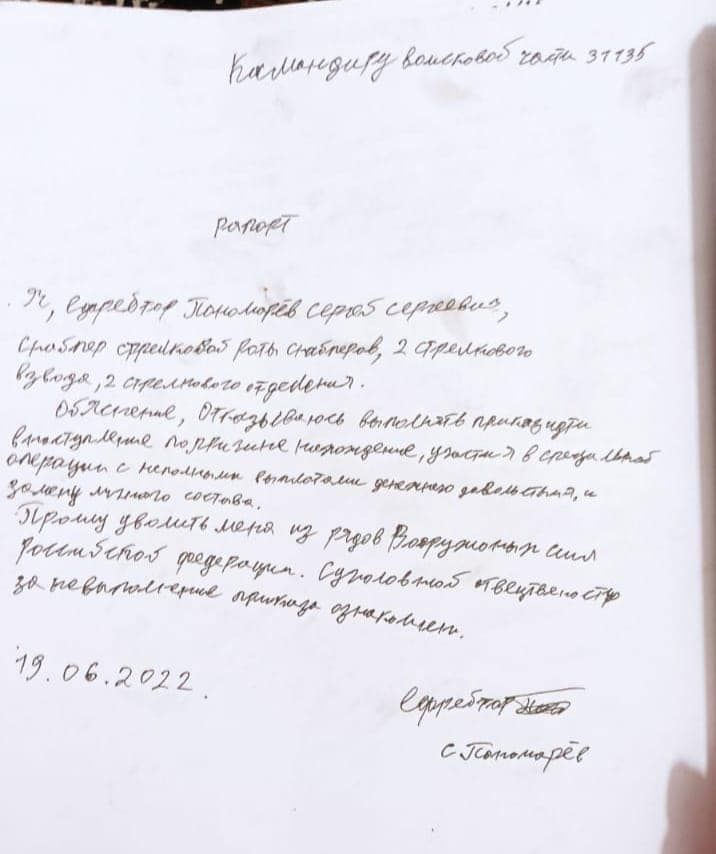 Командиру войсковой части 31135
рапорт
Я, Ефрейтор Пономарёв Сергей Сергеевич,
снайпер стрелковой роты снайперов, 2 стрелкового
взвода, 2 стрелкового отделения.
Обяснение, Отказываюсь выполнять приказ идти
в наступление по причине нахождение, участия в специальной
операции с неполными выплатами денежного довольствия, и
замену личного состава.
Прошу уволить меня из рядов Вооружоных сил
Российской федерации. С уголовной
за невыполнение приказа ознакомлен.
19.06.2022.
Ефрейтор
С Пономарёв